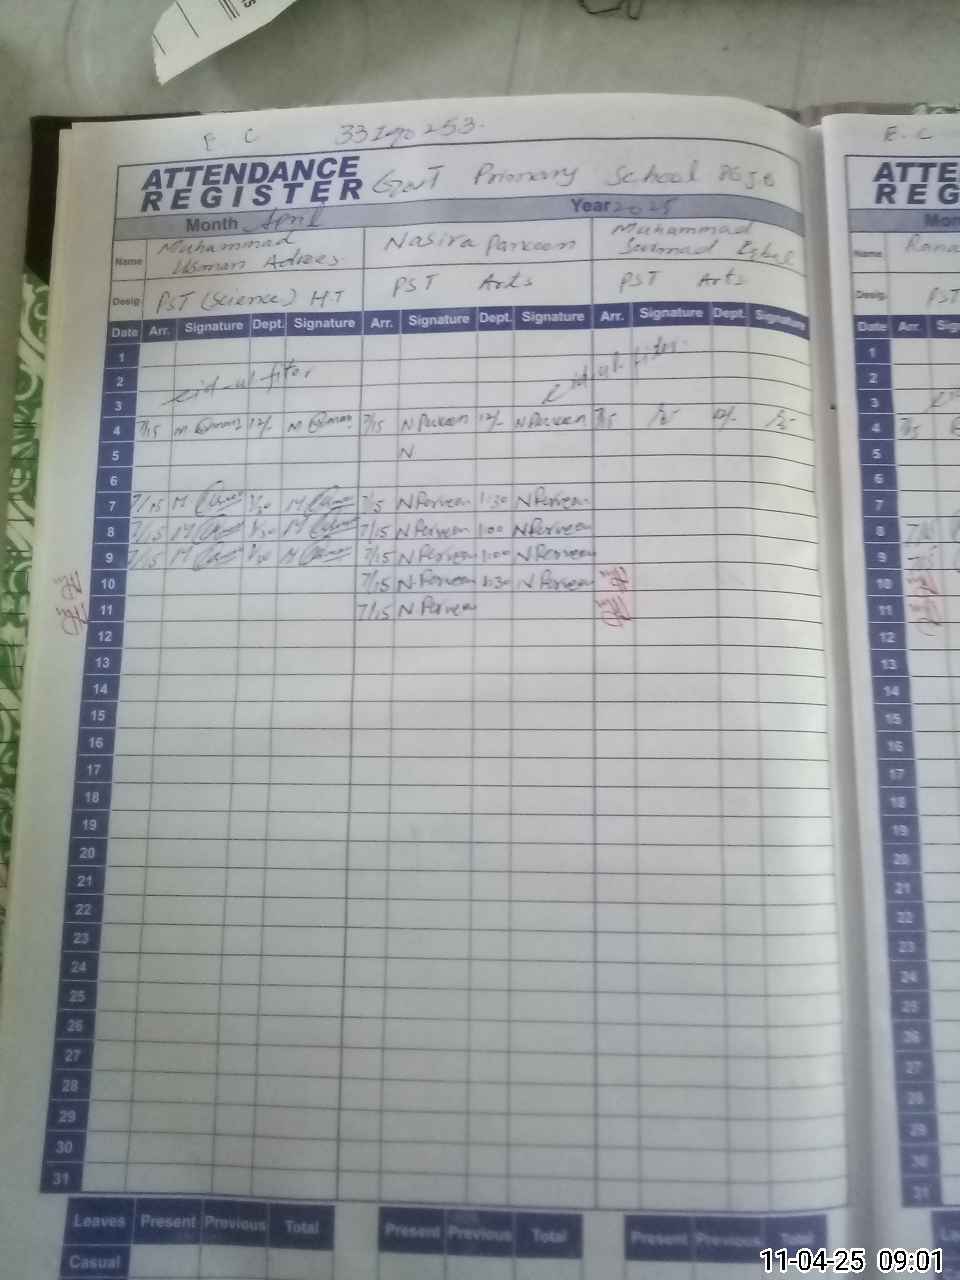 E C 33190253.
ATTENDANCE
REGISTER Govt Primary School
Month April Year 2025
Name Muhammad Usman Adrees Nasira Parveen Muhammad
Desig PST (Science) H.T PST Arts PST Arts
Date Arr. Signature Dept. Signature Arr. Signature Dept. Signature Arr. Signature Dept. Signature
1
2 eid-ul fiter eid ul fiter
3
4 7/15 12/- 7/15 N Parveen 12/- N Parveen 7/15 12/-
5 N
6
7 7/15 M 1/30 M 7/15 N Parveen 1:30 N Parveen
8 7/15 M 1/30 M 7/15 N Parveen 1:00 N Parveen
9 7/15 M 1/30 M 7/15 N Parveen 1:00 N Parveen
10 7/15 N. Parveen 1:30 N Parveen
11 7/15 N Parveen
12
13
14
15
16
17
18
19
20
21
22
23
24
25
26
27
28
29
30
31
Leaves Present Previous Total Present Previous Total Present Previous Total
Casual
E. C
ATTE
REG
Mon
Name Rana
Desig PST
Date Arr. Sig
1
2
3
4 7/15
5
6
7
8 7/15
9 7/15
10
11
12
13
14
15
16
17
18
19
20
21
22
23
24
25
26
27
28
29
30
31
11-04-25 09:01